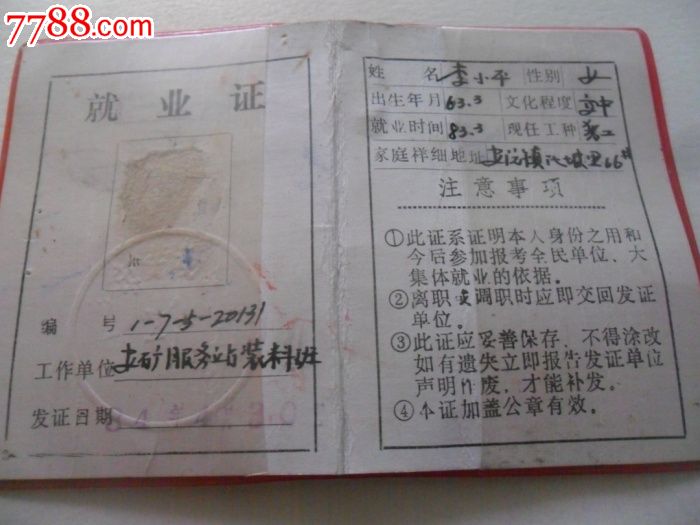 7788.com
就业证
编号 1-7-5-20131
工作单位 安矿服务站装料班
发证日期
姓名 李小平 性别 女
出生年月 63.3 文化程度 高中
就业时间 83.3 现任工种
家庭详细地址 安源镇 66
注意事项
①此证系证明本人身份之用和
今后参加报考全民单位、大
集体就业的依据。
②离职或调职时应即交回发证
单位。
③此证应妥善保存，不得涂改
如有遗失立即报告发证单位
声明作废，才能补发。
④本证加盖公章有效。